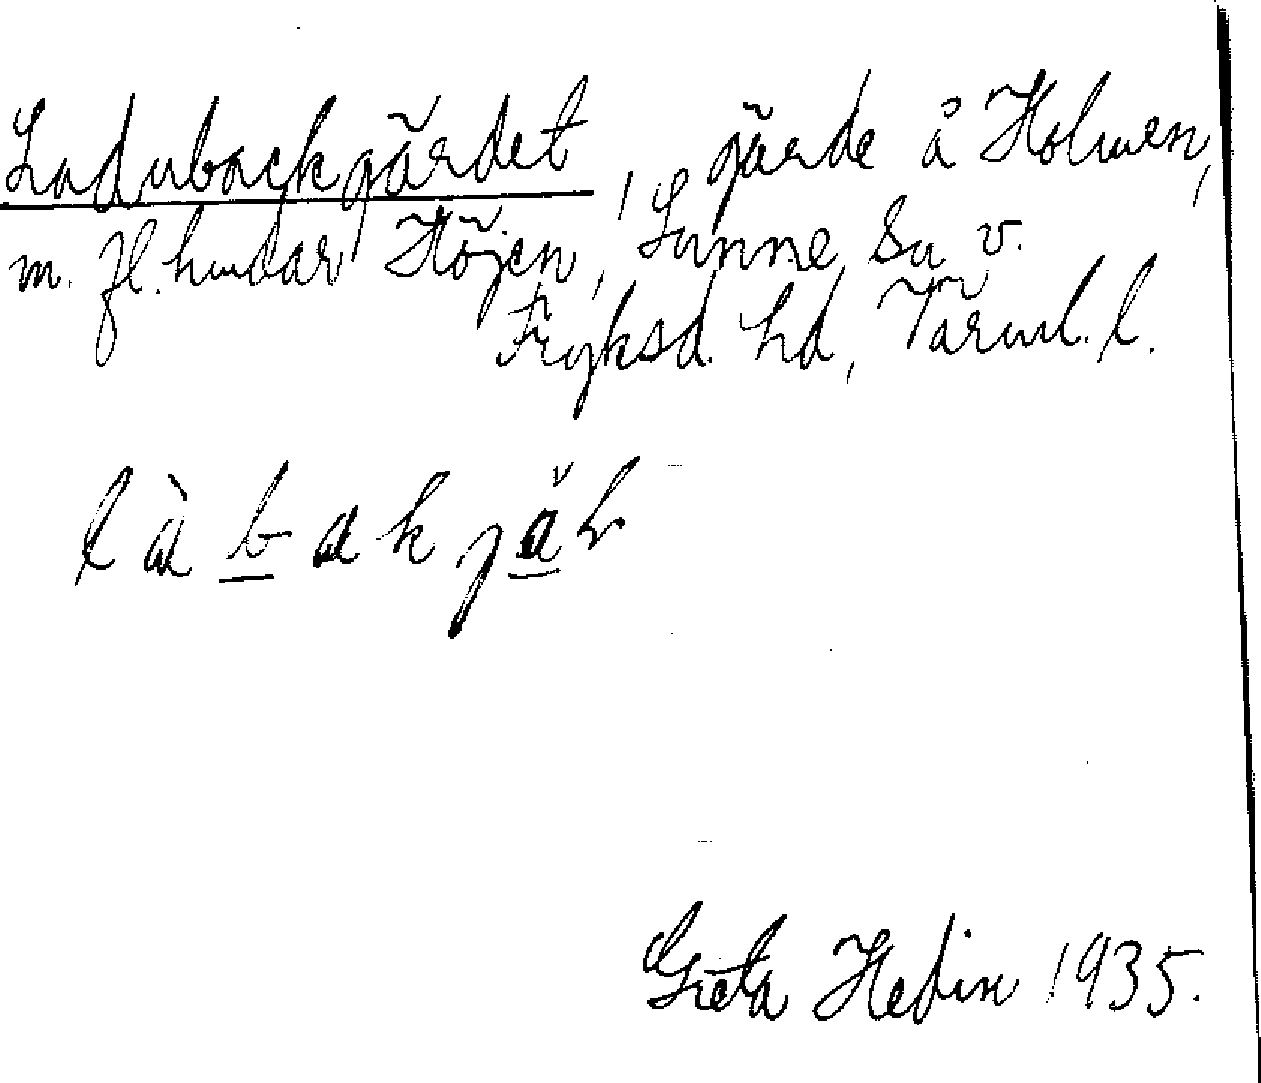 Ladubackgärdet, gärde å Holmen,
m. fl. hmdar Höjen, Sunne Su v.
Fryksd. hd, Värml. l.
Greta Hedin 1935.